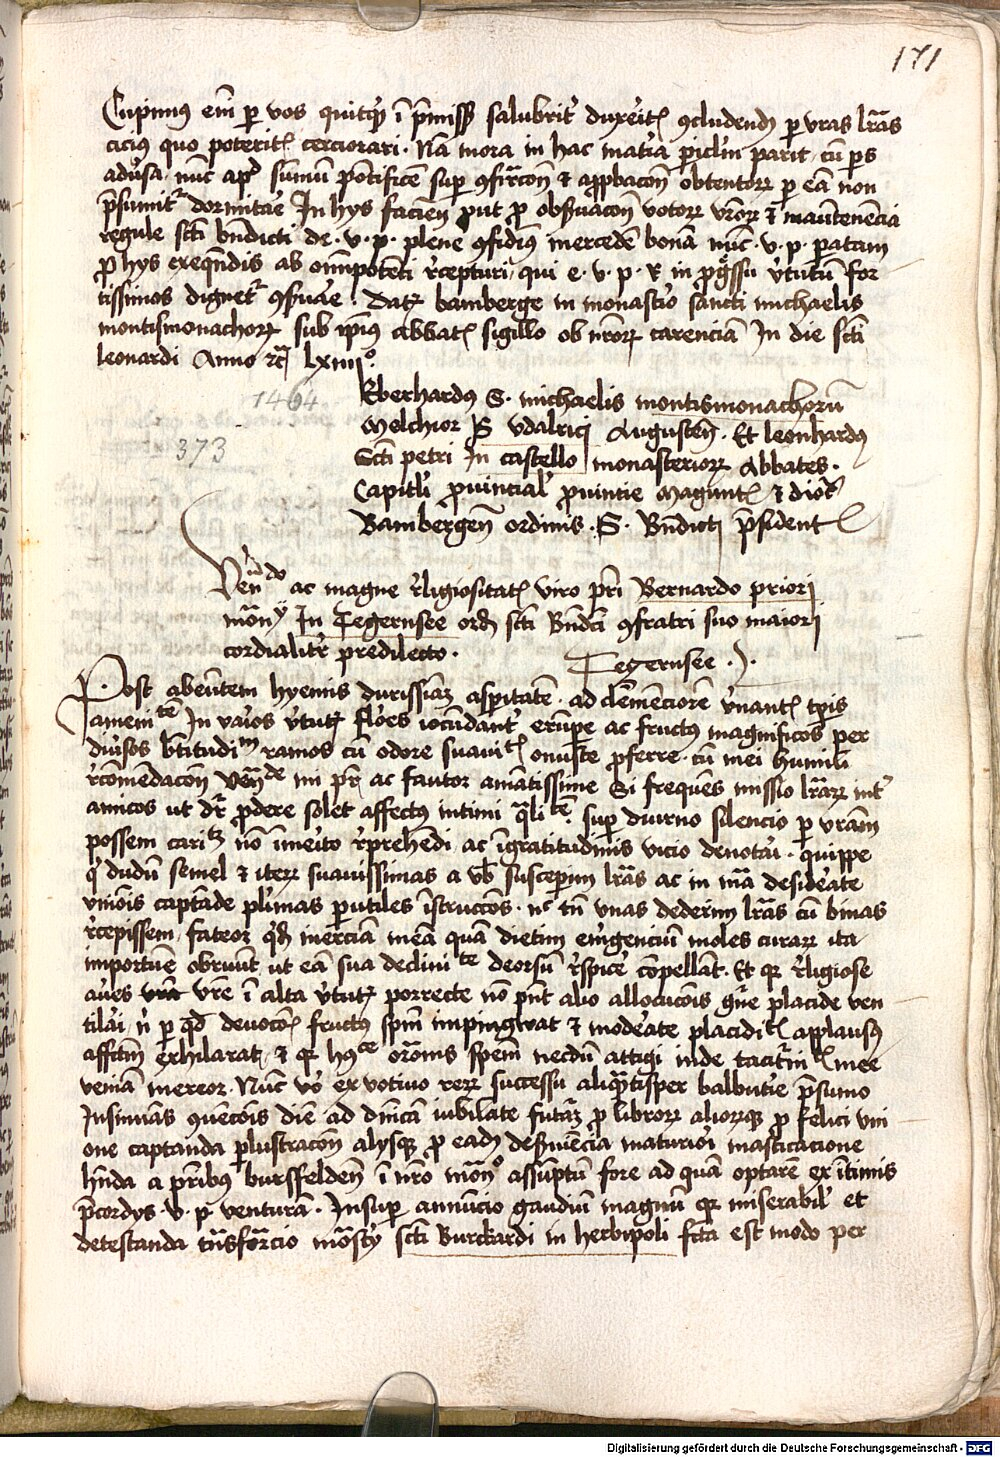 171
Cupimus em̄ per vos quitq̄ ī p̄missis salubrit' duxerit' ꝯcludend' per vras lr̄as
cicius quo poterit' cerciorari. Nam mora in hac mat'ia pic'lm parit, cū ps
adu'sa nūc apd' sūmū pōtificē sup ꝯfirr̄acōn ⁊ approbacōn obtentorꝝ p eā non
p̄sumit' dormitare In hys facien̄ put p obẜuacōn votorꝝ vr̄orꝝ ⁊ manutenēcia
regule sc̄ti bn̄dicti de .v.p. plene ꝯfidim' mercedē bonā nūc .v.p. paratam
p hys exeqn̄dis ab om̄ipotēti r̄cepturi, qui e.v.p.R in pg̊ssu v̄tutū for
tissimos dignet' ꝯẜuare. Datꝝ bamberge in monast'io sancti michaelis
montismonachorꝝ sub ip̄ius abbat' sigillo ob nr̄orꝝ carenciā In die sc̄ti
leonardi Anno ꝛc̄ lxiiii°.
1464
373
Eberhardus S. michaelis montismonachorū
Melchior S vdalrici Augusten̄. Et leonhardus
Sc̄ti petri In castello monasteriorꝝ Abbates.
Capitl'i p̄uincial' p̄uintie Magunt' ⁊ dioc'
Bambergen̄ ordinis .S. Bn̄dicti p̄sident'
Ven̄ndo ac magne r̄ligiositat' viro pr̄i Bernardo priori
mōn' In Tegernsee ord' sc̄ti Bn̄dci ꝯfratri suo maiori
cordialit' predilecto.
Tegernsee.
Post abeūtem hyemis durissimā asp'itatē, ad clemēciorē v'nant' tp̄is
ameni'te In va'ios v̄tutꝝ flōes iocūdant' erūpe ac fructus magnificos per
diu'sos b'titudi'm ramos cū odore suauit' onuste pferre cū mei humili
r̄cōmēdacōn ven̄de mi pr̄ ac fautor amātissime Si frequēs missio lr̄arꝝ int'
amicos ut dr̄ pdere solet affectus intimi q̄li'te, sup diurno silencio p vram
possem carit' nō īmeito r̄prehēdi ac īgratitudinis vicio denotari. quippe
q dudū semel ⁊ iterꝝ suauissimas a vb' suscepim lr̄as ac in mā desideate
vnīois captāde pl'imas putiles īstruccōes. nc tn̄ vnas dederim lr̄as cū binas
r̄cepissem, fateor qd' inerciā meā quā dietim em'genciū moles curarꝝ ita
importūe obruūt, ut eā sua declini'te deorsū r̄spice cōpellāt. Et qꝛ r̄ligiose
aūes vre ī alta v̄tutꝝ porrecte nō pn̄t alio allocucōis gn̄e placide ven
tilari, n̄ p qd' deuocōis fructus spm̄ impingwat ⁊ modeate placidit' applausus
affctm̄ exhilarat, ⁊ qꝛ h' orōnis spem necdū attigi inde tacit'nit' mee
veniā mereor. Nūc vo ex votiuo rerꝝ successu aliqn̄tisper balbutīe p̄sumo
Insinuās ꝯuencōis diē ad dn̄icā iubilate futurā p librorꝝ aliorūqꝫ p felici vni
one captanda plustracōn alysqꝫ p eadē deẜuīēcia maturiori masticacione
hn̄da a pr̄ibus burssfelden̄ ī nr̄o mōn° assūptū fore ad quā optarē ex ītimis
p̄cordys .v.p. venturā. Insup annūcio gaudiū magnū qꝛ miserabil' et
detestanda trā̄sforr̄acio mōst'ij sc̄ti Burckardi in herbipoli fcta est modo per
Digitalisierung gefördert durch die Deutsche Forschungsgemeinschaft - DFG